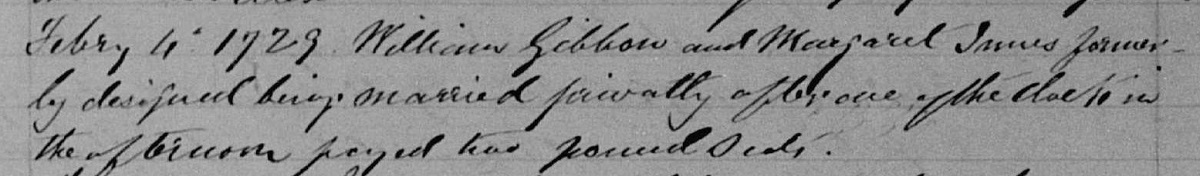 Febry 4t 1729 William Gibbon and Margaret Innes former-
ly designed being married privatly after one of the clock in
the afternoon payed two pound Scots.